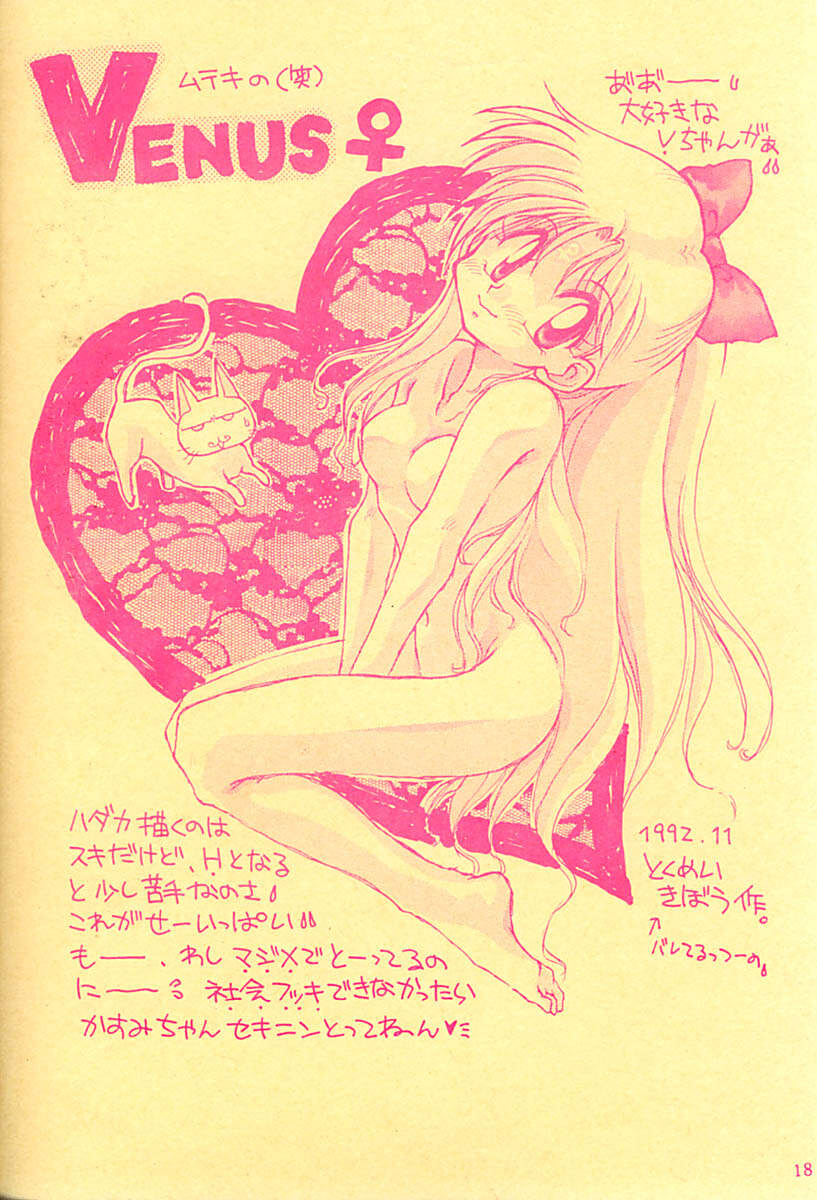 ムテキの(笑)
VENUS♀
あ゛あ゛ーー〃
大好きな
Vちゃんがぁ〃
ハダカ描くのは
スキだけど、Hとなる
と少し苦手なのさ〃
これがせーいっぱい〃
もー、わしマジメでとーってるの
にーー〃社会フッキできなかったら
かすみちゃんセキニンとってねーん♥
1992.11
とくめい
きぼう作。
↑
バレてるっつーの〃
18